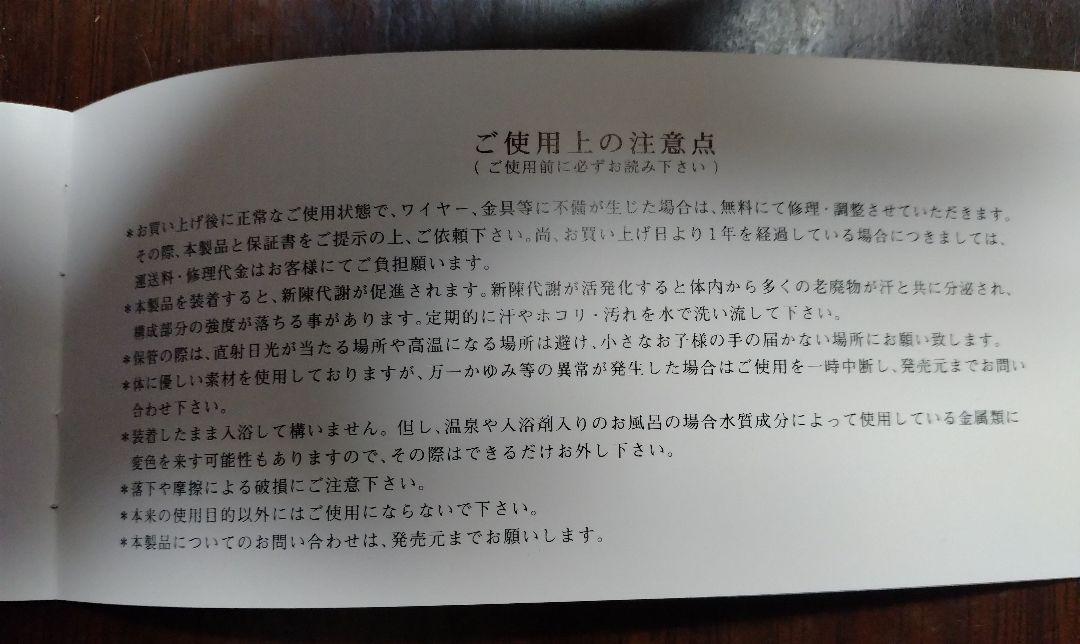 ご使用上の注意点
(ご使用前に必ずお読み下さい)
*お買い上げ後に正常なご使用状態で、ワイヤー、金具等に不備が生じた場合は、無料にて修理・調整させていただきます。
その際、本製品と保証書をご提示の上、ご依頼下さい。尚、お買い上げ日より1年を経過している場合につきましては、
運送料・修理代金はお客様にてご負担願います。
*本製品を装着すると、新陳代謝が促進されます。新陳代謝が活発化すると体内から多くの老廃物が汗と共に分泌され、
構成部分の強度が落ちる事があります。定期的に汁やホコリ・汚れを水で洗い流して下さい。
*保管の際は、直射日光が当たる場所や高温になる場所は避け、小さなお子様の手の届かない場所にお願い致します。
*体に優しい素材を使用しておりますが、万一かゆみ等の異常が発生した場合はご使用を一時中断し、発売元までお問い
合わせ下さい。
*装着したまま入浴して構いません。但し、温泉や入浴剤入りのお風呂の場合水質成分によって使用している金属類に
変色を来す可能性もありますので、その際はできるだけお外し下さい。
*落下や摩擦による破損にご注意下さい。
*本来の使用目的以外にはご使用にならないで下さい。
*本製品についてのお問い合わせは、発売元までお願いします。